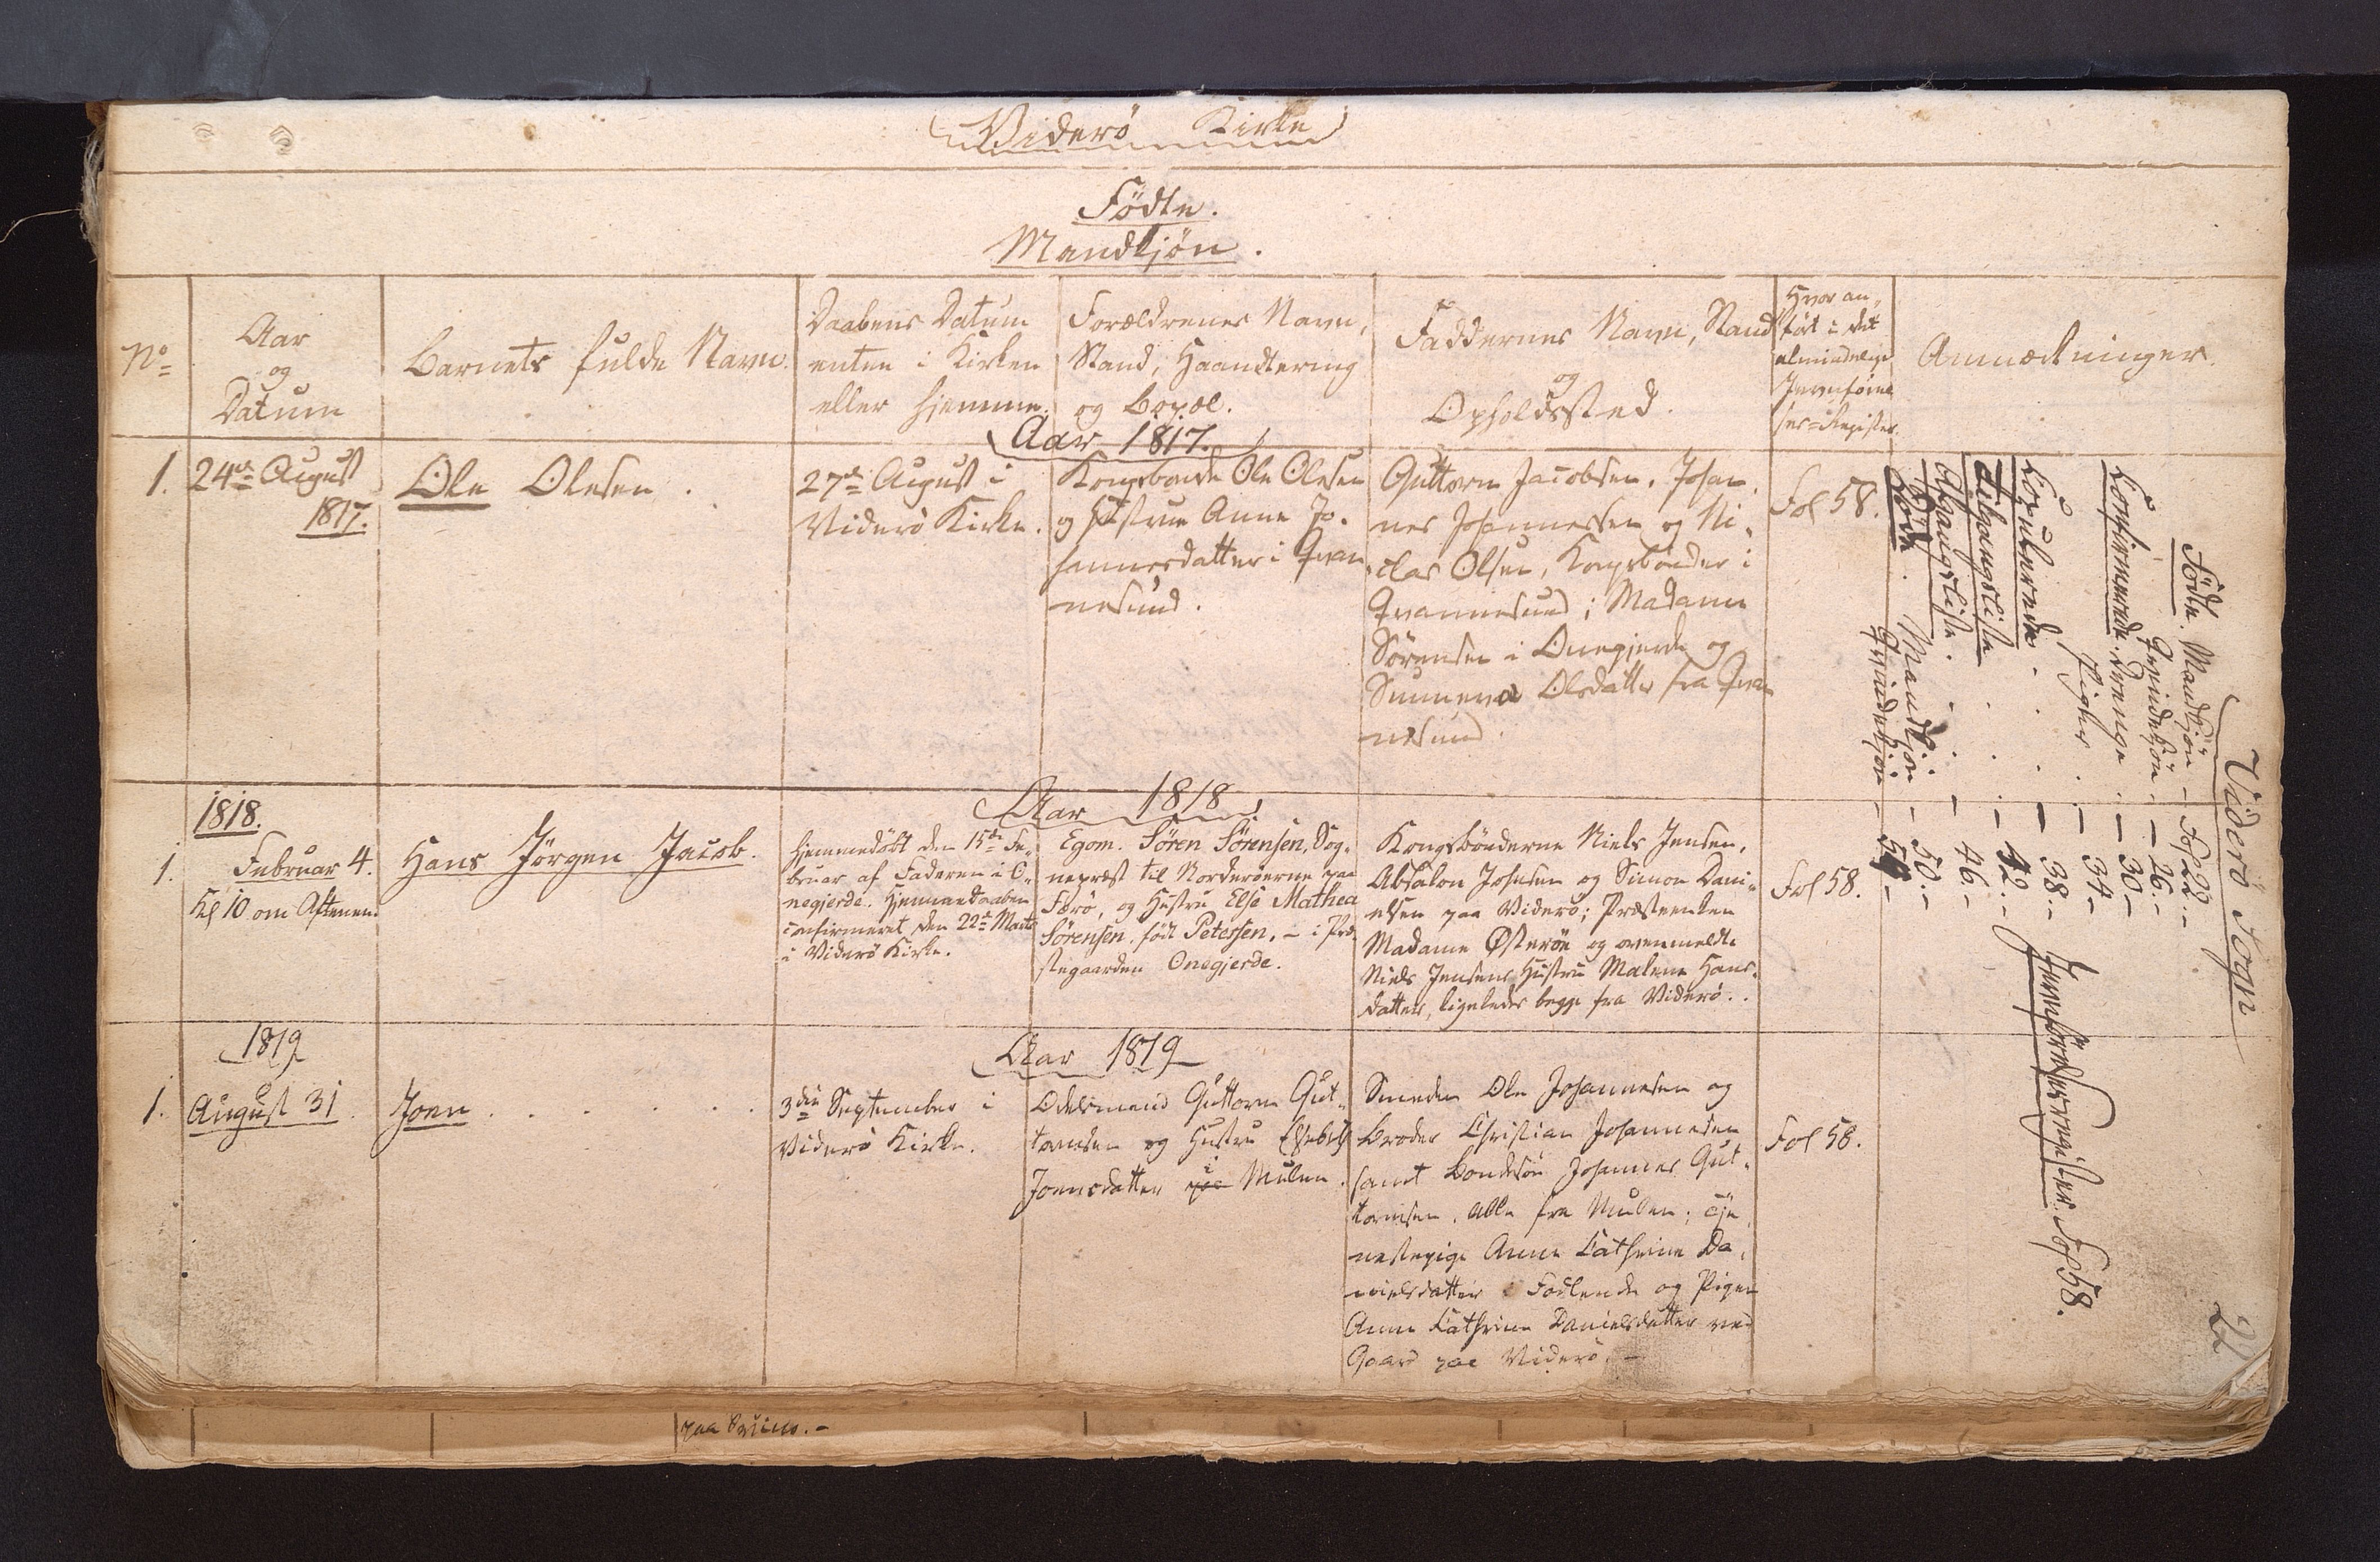 Viderö Kirke
Födte.
Mandkjön.
No
Aar
og
Datum
Barnets fulde Navn.
Daabens Datum
enten i Kirken
eller hjemme.
Forældrenes Navn,
Stand, Haandtering
og Bopæl.
Faddernes Navn, Stand
og
Opholdssted.
Hvor an-
ført i det
almindelige
Jevnførel
ses-Register.
Anmærkninger.
Aar 1817.
1.
24de August
1817.
Ole Olesen.
27de August i
Viderö Kirke.
Kongsbonde Ole Olesen
og Hustrue Anne Jo-
hannesdatter i Qvan
nesund.
Guttorm Jacobsen, Johan
nes Johannessen og Ni-
clas Olsen, Kongsbönder i
Qvannesund; Madame
Sörensen i Onegjerde og
Sunneva Olsdatter fra Qvan
nesund.
Fol 58.
Aar 1818
1818.
1.
Februar 4.
Kl 10 om Aftenen
Hans Jörgen Jacob.
Hjemmedöbt den 15de Fe-
bruar af Faderen i O-
negjerde. Hjemmedaaben
confirmeret den 22de Marts
i Viderö Kirke.
Egom. Sören Sörensen, Sog-
nepræst til Norderöerne paa
Færö, og Hustru Else Mathea
Sörensen, födt Petersen, - i Præ
stegaarden Onegjerde.
Kongsbönderne Niels Jensen,
Absalon Johnsen og Simon Dani-
elsen paa Viderö; Præsteenken
Madame Østeröe og ovenmeldte
Niels Jensens Hustru Malene Hans-
datter, ligeledes begge fra Viderö.
Fol 58.
Aar 1819
1819
1.
August 31.
Joen
3die September i
Viderö Kirke.
Odelsmand Guttorm Gut-
tormsen og Hustru Elsebeth
Joensdatter paa i Mulen.
Smeden Ole Johannesen og
Broder Christian Johannesen
samt Bondesön Johannes Gut-
tormsen, alle fra Mulen; Tje
nestepige Anne Cathrine Da-
nielsdatter i Fodlende og Pigen
Anne Cathrine Danielsdatter ved
Gaard paa Viderö. -
Fol 58.
Viderö Sogn
Födte. Mandkjön - Fol 22.-
Qvindekjön - 26.-
Confirmerede. Drenge - 30-
Piger - 34-
Copulerede. - 38.-
Tilgangsliste - 42.-
Afgangsliste. - 46.-
Döde. Mandkjön - 50.-
Qvindekjön - 54-
Jevnförelsesregister. Fol 58.
22